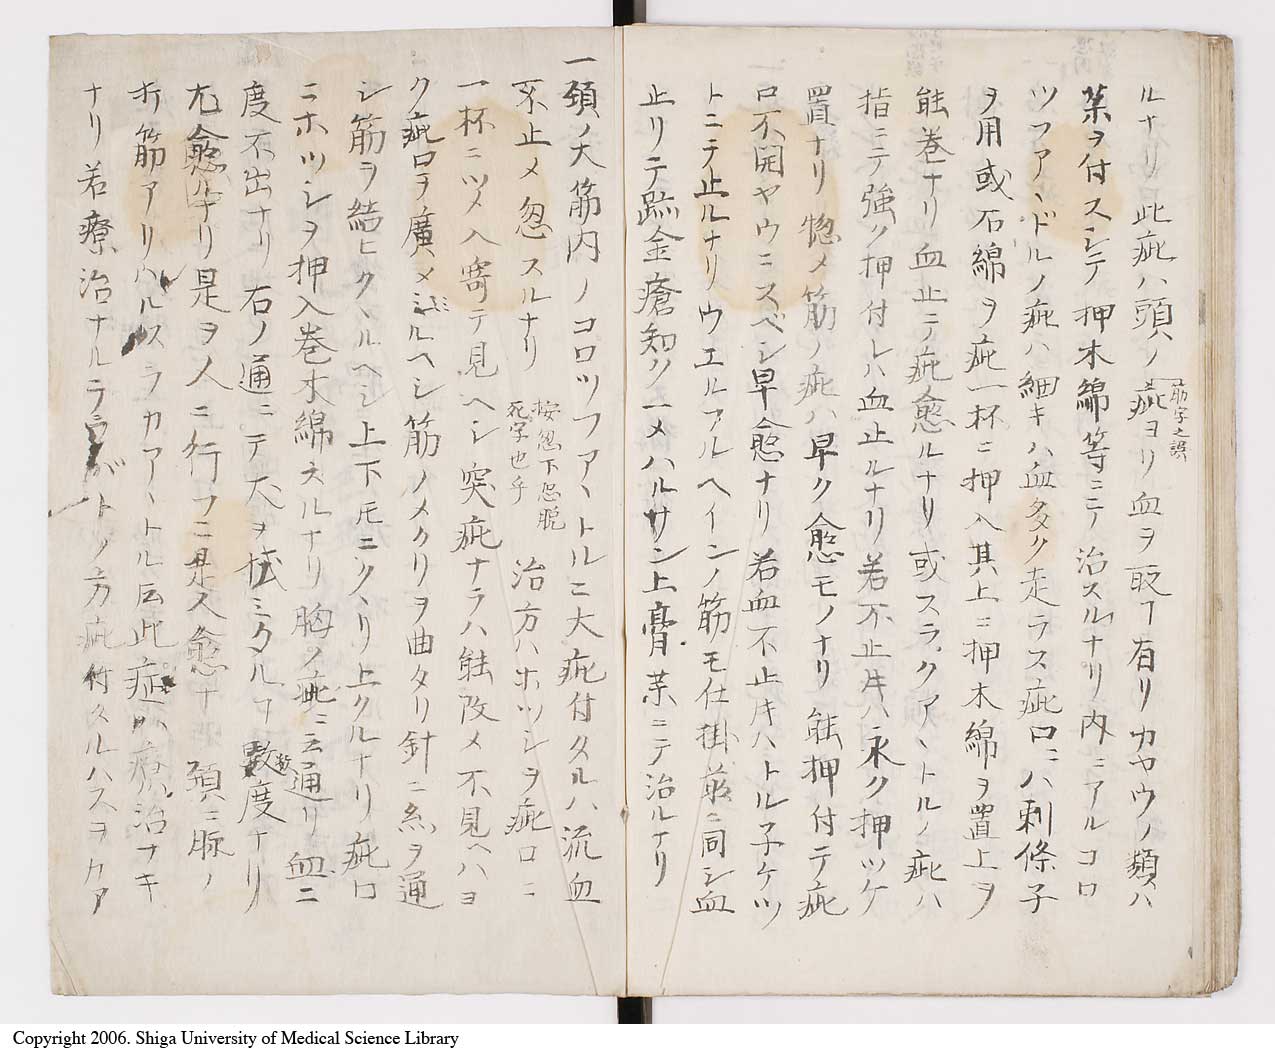 ルナリ此疵ハ頭ノ疵ヨリ血ヲ取丁有リカヤウノ類ハ
筋字之誤
薬ヲ付スシテ押木綿等ニテ治スルナリ内ニアルコロ
ツフアヽドルノ疵ハ細キハ血多ク走ラス疵口ニハ刺條子
ヲ用或石綿ヲ疵一杯ニ押入其上ニ押木綿ヲ置上ヲ
能巻ナリ血止テ疵愈ルナリ或スラクアヽトルノ疵ハ
指ニテ強ク押付レハ血止ルナリ若不止片ハ永ク押ツケ
置ナリ惣メ筋ノ疵ハ早ク愈モノナリ能押付テ疵
口不開ヤウニスベシ早愈ナリ若血不止片ハトル子ケツ
トニテ止ルナリウエルアルヘインノ筋モ仕掛前ニ同シ血
止リテ跡金瘡知ツノ一メハルサン上膏薬ニテ治ルナリ
一頚ノ大筋内ノコロツフアヽトルニ大疵付タルハ流血
不止メ忽スルナリ 治方ハホツシヲ疵口ニ
按忽下恐脱
死字也乎
一杯ニツメ入寄テ見ヘシ突疵ナラハ能改メ不見ヘハヨ
ク疵口ヲ廣メミルヘシ筋ノメクリヲ曲タリ針ニ糸ヲ通
シ筋ヲ結ヒクヽルヘシ上下圧ニクヽリ上クルナリ疵口
ニホツシヲ押入巻木綿スルナリ胸ノ疵ニ云通リ血ニ
度不出ナリ右ノ通ニテ大ヲミタル丁數度ナリ
數
尤愈ルナリ是ヲ人ニ行フニ是又愈ナ 頚ニ脈ノ
筋アリハルスラカアヽトル此症ハ療治ナキ
ナリ若療治ナルラトノ方疵付タルハスヲカア
Copyright 2006. Shiga University of Medical Science Library